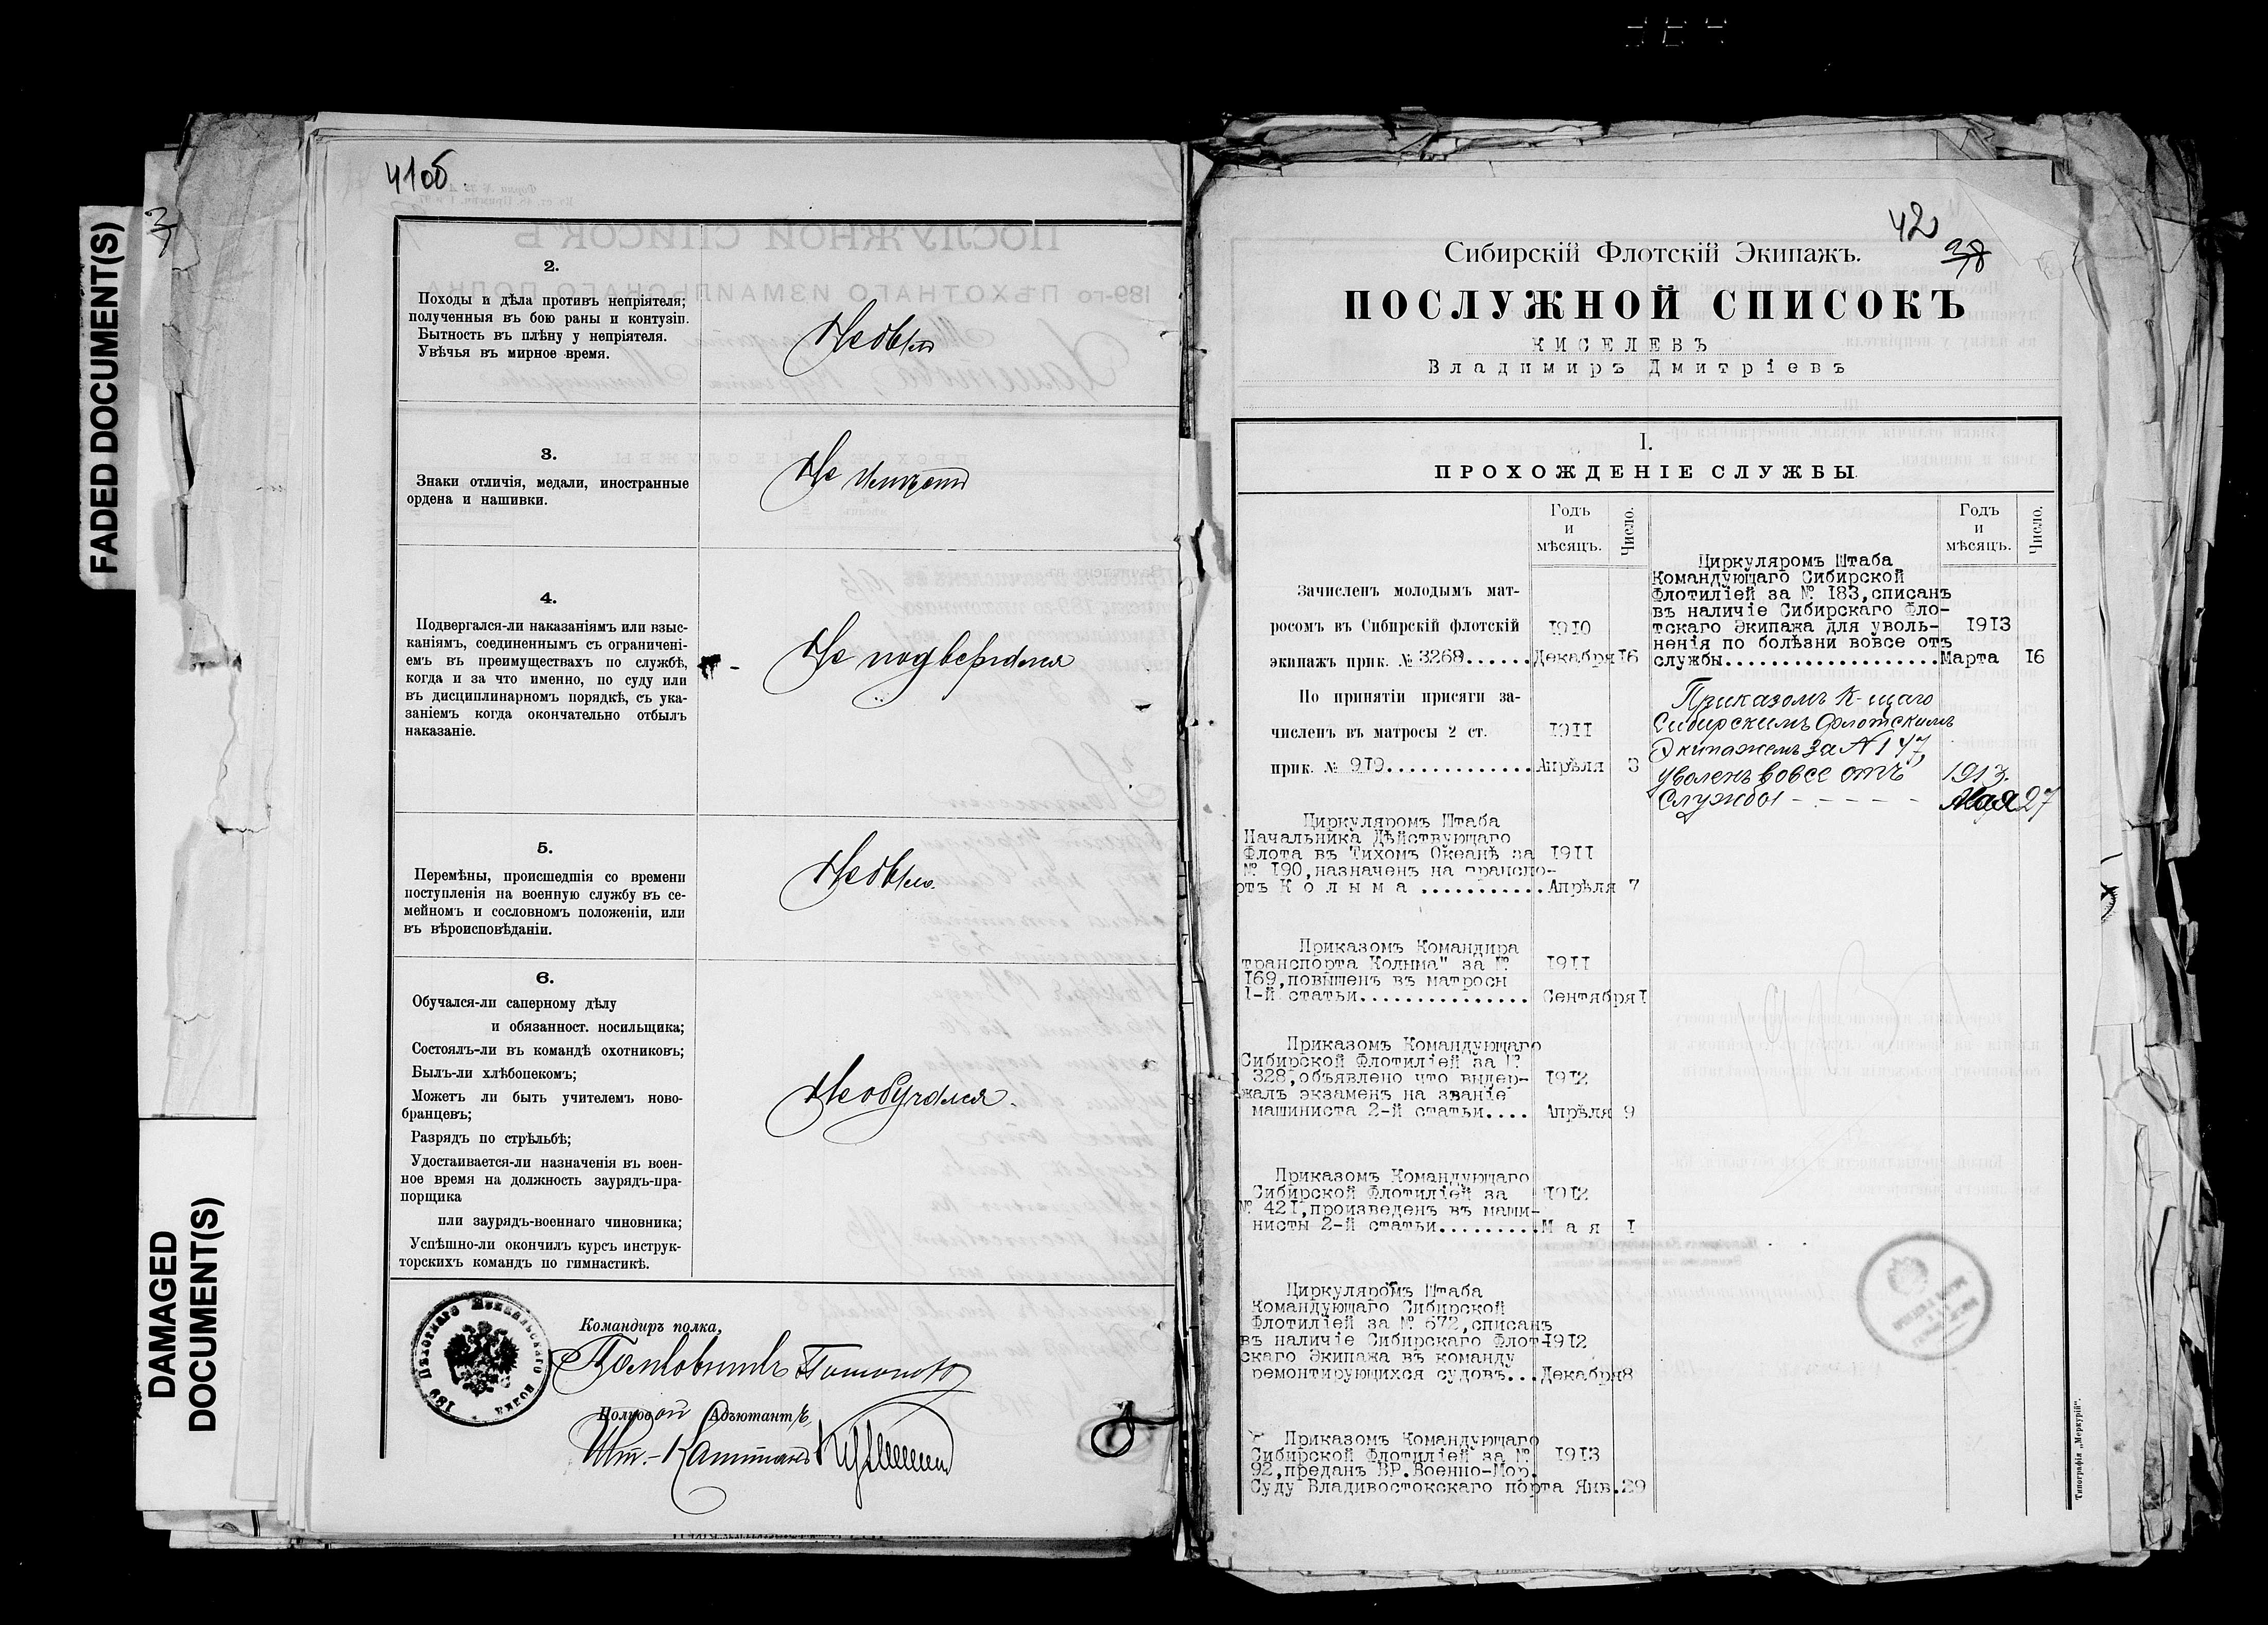 FADED DOCUMENT(S)
DAMAGED
DOCUMENT(S)
41об.
2.
Походы и дѣла противъ непріятеля;
полученныя въ бою раны и контузіи.
Бытность въ плѣну у непріятеля.
Увѣчья въ мирное время.
Не былъ
3.
Знаки отличія, медали, иностранные
ордена и нашивки.
Не имѣетъ
4.
Подвергался-ли наказаніямъ или взыс-
каніямъ, соединеннымъ съ ограничені-
емъ въ преимуществахъ по службѣ,
когда и за что именно, по суду или
въ дисциплинарномъ порядкѣ, съ ука-
заніемъ когда окончательно отбылъ
наказаніе.
Не подвергался
5.
Перемѣны, происшедшія со времени
поступленія на военную службу въ се-
мейномъ и сословномъ положеніи, или
въ вѣроисповѣданіи.
Не было.
6.
Обучался-ли саперному дѣлу
и обязанност. носильщика;
Состоялъ-ли въ командѣ охотниковъ;
Былъ-ли хлѣбопекомъ;
Можетъ ли быть учителемъ ново-
бранцевъ;
Разрядъ по стрѣльбѣ;
Удостаивается-ли назначенія въ воен-
ное время на должность заурядъ-пра-
порщика
или заурядъ-военнаго чиновника;
Успѣшно-ли окончилъ курсъ инструк-
торскихъ командъ по гимнастикѣ.
Не обучался.
189 Пѣхотнаго Измаильскаго полка
Командиръ полка,
Полковникъ
Полковой Адъютантъ,
Шт.-Капитанъ
42
38
Сибирскій Флотскій Экипажъ.
ПОСЛУЖНОЙ СПИСОКЪ
КИСЕЛЕВЪ
Владимиръ Дмитріевъ
I.
ПРОХОЖДЕНІЕ СЛУЖБЫ.
Годъ
и
мѣсяцъ.
Число.
Зачисленъ молодымъ мат-
росомъ въ Сибирскій флотскій 1910
экипажъ прик. № 3268......Декабря 16
По принятіи присяги за-
численъ въ матросы 2 ст. 1911
прик. № 919.............Апрѣля 3
Циркуляромъ Штаба
Начальника Дѣйствующаго
Флота въ Тихомъ Океанѣ за 1911
№ 190,назначенъ на транспо-
ртъ Колыма ...........Апрѣля 7
Приказомъ Командира
транспорта Колыма" за № 1911
169,повышенъ въ матросы
1-й статьи............... Сентября 1
Приказомъ Командующаго
Сибирской Флотиліей за №
328,объявлено что выдер- 1912
жалъ экзаменъ на званіе
машиниста 2-й статьи.... Апрѣля 9
Приказомъ Командующаго
Сибирской Флотиліей за 1912
№ 421,произведенъ въ маши-
нисты 2-й статьи.........Мая 1
Циркуляромъ Штаба
Командующаго Сибирской
Флотиліей за № 672,списанъ
въ наличіе Сибирскаго Флот-1912
скаго Экипажа въ команду
ремонтирующихся судовъ...Декабря8
Приказомъ Командующаго
Сибирской Флотиліей за № 1913
92,преданъ ВР.Военно-Мор.
Суду Владивостокскаго порта Янв.29
Годъ
и
мѣсяцъ.
Число.
Циркуляромъ Штаба
Командующаго Сибирской
Флотиліей за № 183,списанъ
въ наличіе Сибирскаго Фло-
тскаго Экипажа для уволь- 1913
ненія по болѣзни вовсе отъ
службы....................Марта 16
Приказомъ К-щаго
Сибирскимъ Флотскимъ
Экипажемъ за № 147,
уволенъ вовсе отъ 1913.
Службы - - - - - - Мая 27
Типографія „Меркурій".